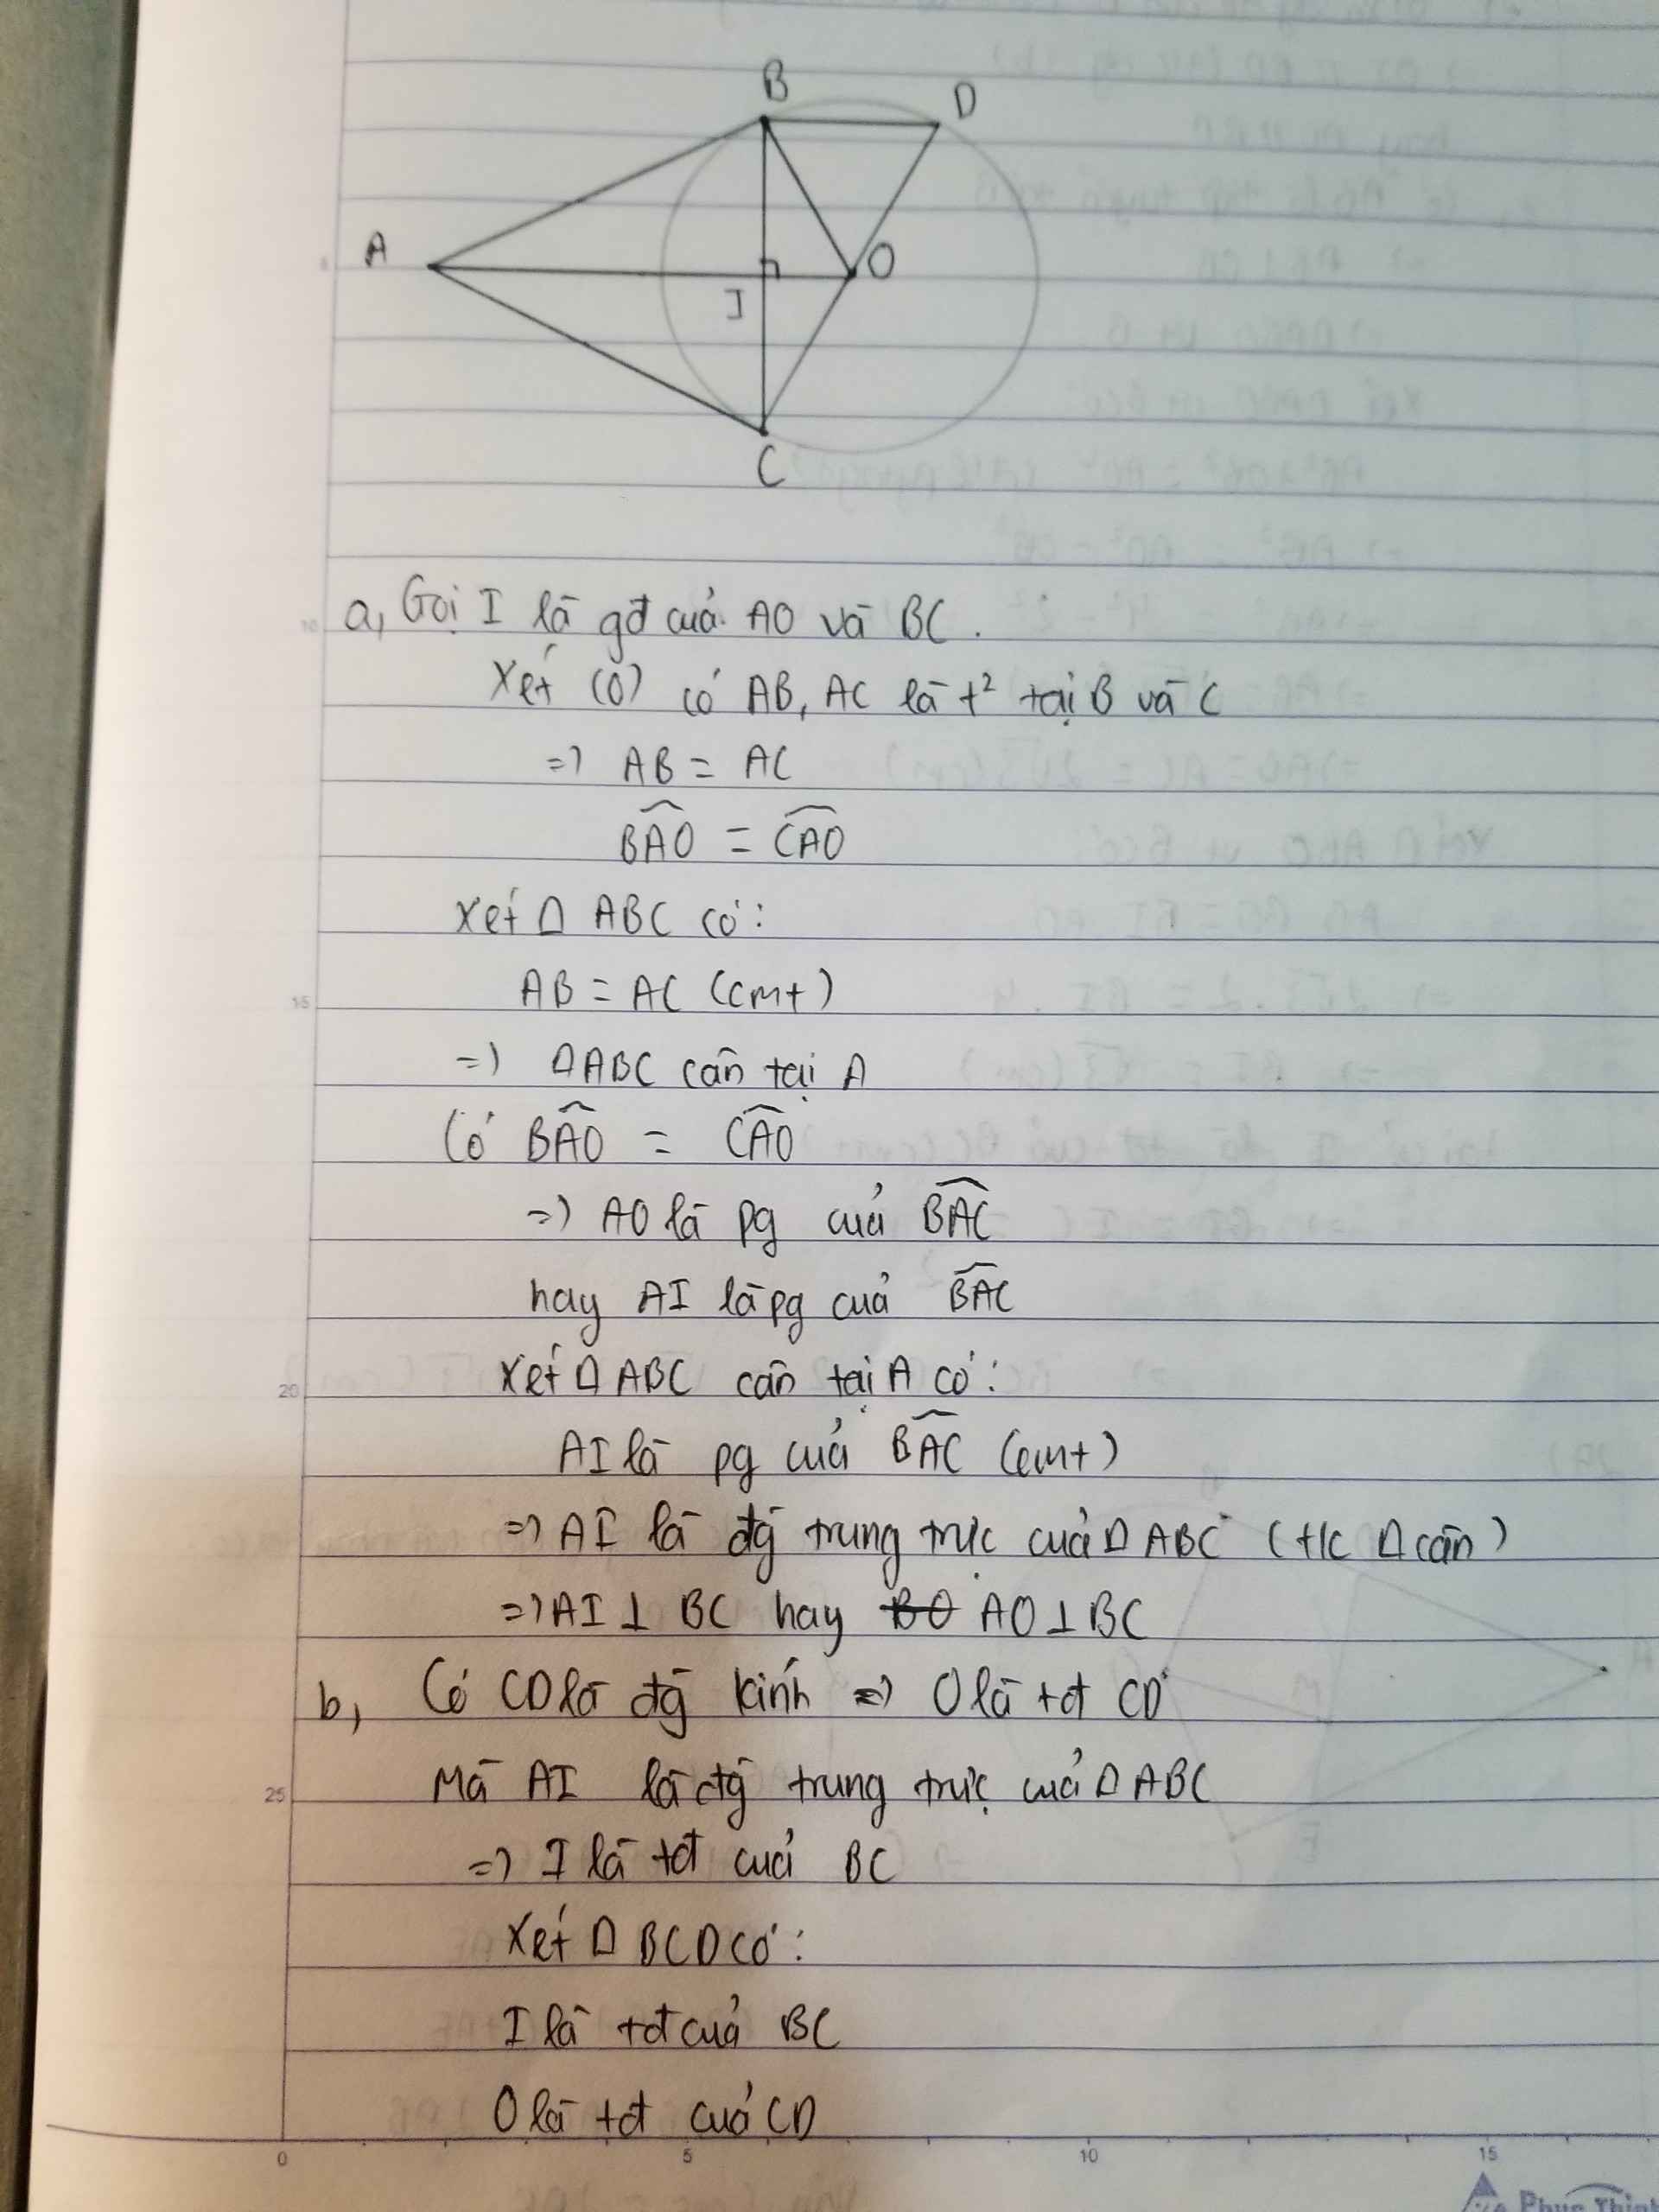 B
D
A
O
I
C
a, Gọi I là gđ của AO và BC.
Xét (O) có AB, AC là t² tại B và C
=) AB = AC
BAO = CAO
Xét Δ ABC có:
AB = AC (cmt)
=) ΔABC cân tại A
Có BAO = CAO
=) AO là pg của BAC
hay AI là pg của BAC
Xét Δ ABC cân tại A có:
AI là pg của BAC (cmt)
=) AI là đg trung trực của Δ ABC (t/c Δ cân)
=) AI ⊥ BC hay BO AO ⊥ BC
b, Có CD là đg kính =) O là tđ CD
Mà AI là đg trung trực của Δ ABC
=) I là tđ của BC
Xét Δ BCD có:
I là tđ của BC
O là tđ của CD
0 5 10 15
10
15
20
25